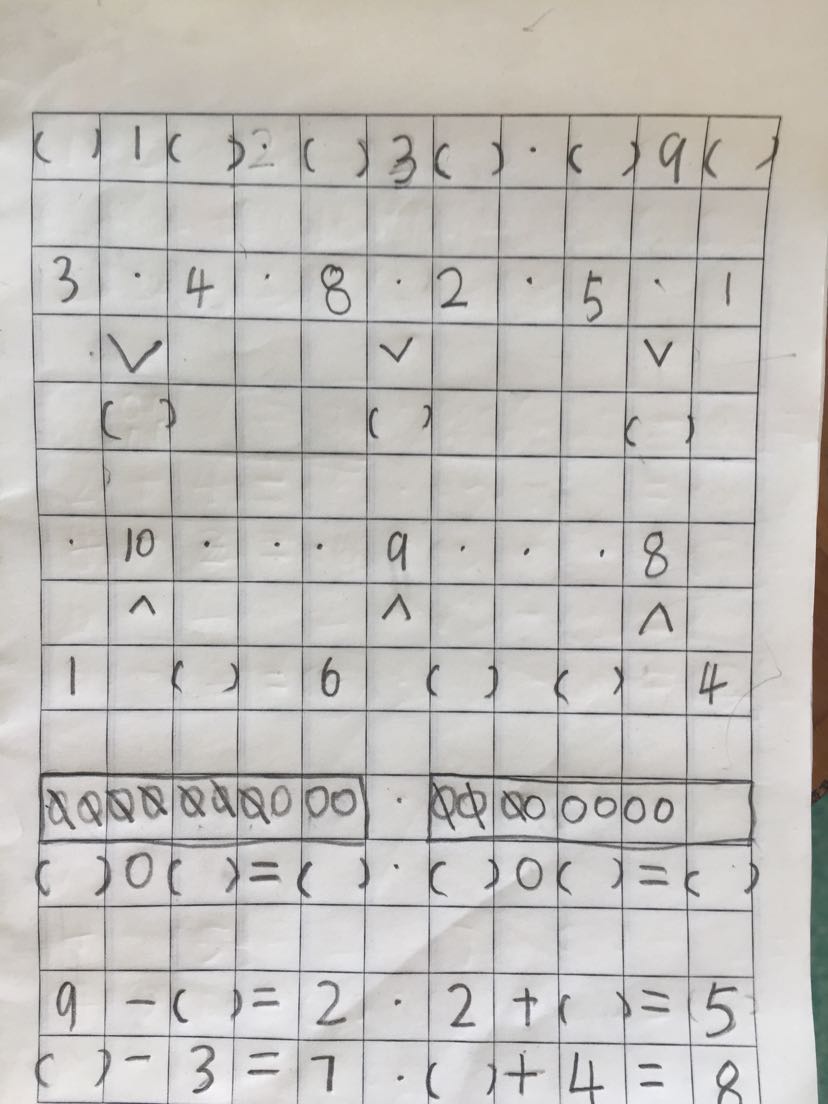 ( ) 1 ( ) · ( ) 3 ( ) · ( ) 9 ( )
3 · 4 · 8 · 2 · 5 · 1
∨ ∨ ∨
( ) ( ) ( )
· 10 · · · 9 · · · 8
∧ ∧ ∧
1 ( ) 6 ( ) ( ) 4
( ) ○ ( ) = ( ) · ( ) ○ ( ) = ( )
9 - ( ) = 2 · 2 + ( ) = 5
( ) - 3 = 7 · ( ) + 4 = 8